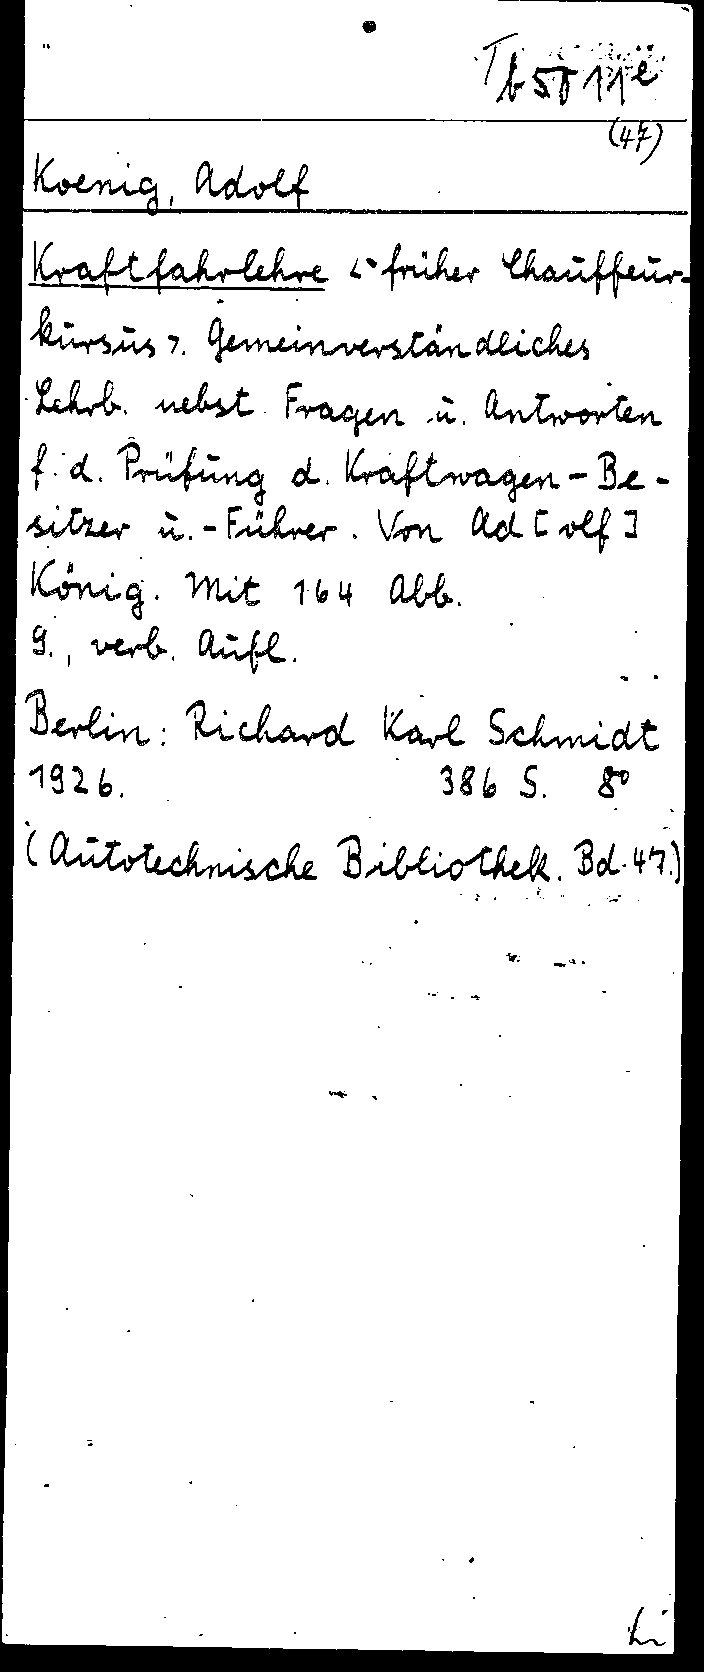 Tb 5811e
(47)
Koenig, Adolf
Kraftfahrlehre <früher Chauffeur-
kursus>. Gemeinverständliches
Lehrb. nebst Fragen u. Antworten
f. d. Prüfung d. Kraftwagen-Be-
sitzer u.-Führer. Von Ad[olf]
König. Mit 164 Abb.
9., verb. Aufl.
Berlin: Richard Karl Schmidt
1926. 386 S. 8°
(Autotechnische Bibliothek. Bd. 47.)